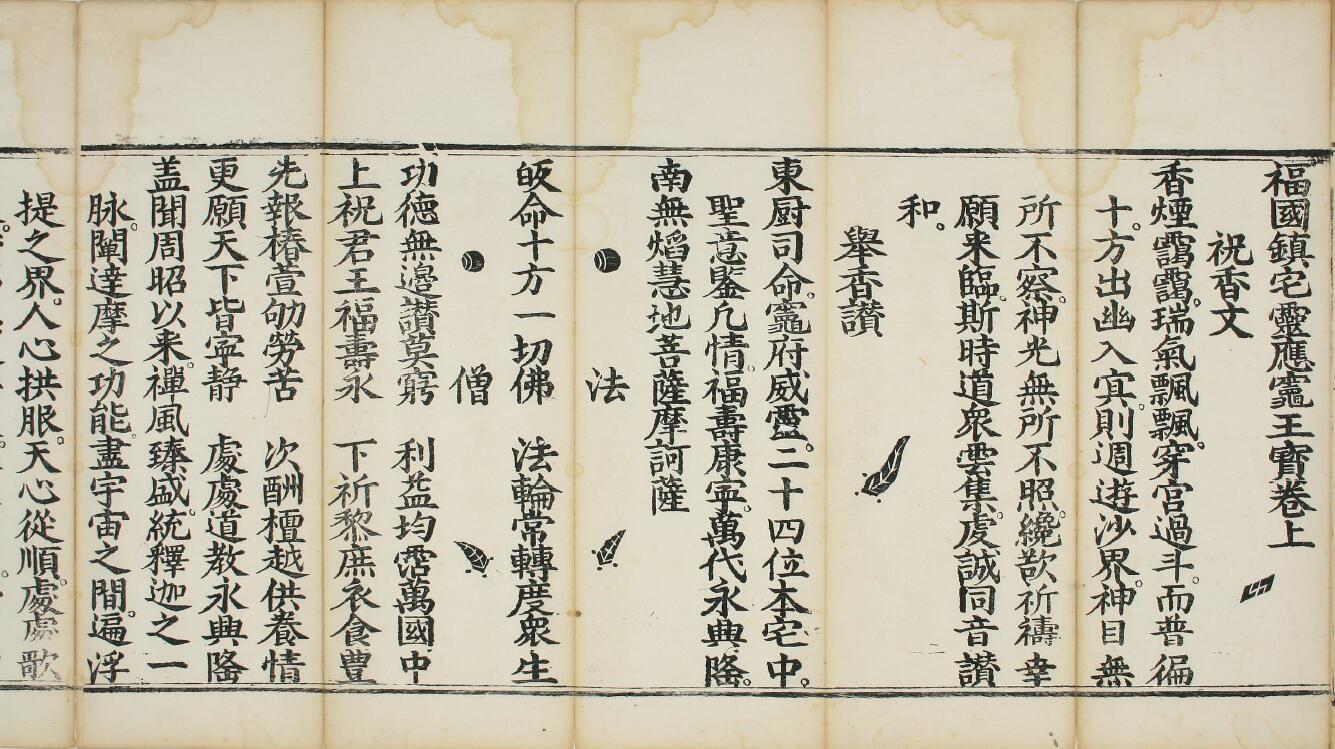 福國鎮宅靈應竈王寶卷上
祝香文
香煙靄靄。瑞氣飄飄。穿宮過斗。而普徧
十。方出幽入㝠。則週遊沙界。神目無
所不察。神光無所不照。纔欲祈禱幸
願来臨。斯時道衆雲集。虔誠同音讃
和。
舉香讃
東厨司命。竈府威靈。二十四位本宅中。
聖意鑒凡情。福壽康寜。萬代永興隆。
南無焰慧地菩薩摩訶薩
法
皈命十方一切佛 法輪常轉度衆生
僧
功德無邊讃莫窮 利益均霑萬國中
上祝君王福壽永 下祈黎庶衣食豊
先報椿萱劬勞苦 次酬檀越供養情
更願天下皆寜静 處處道教永興隆
盖聞周昭以来。禪風臻盛。統釋迦之一
脉。闡達摩之功能。盡宇宙之間。遍浮
提之界。人心拱服。天心從順。處處歌